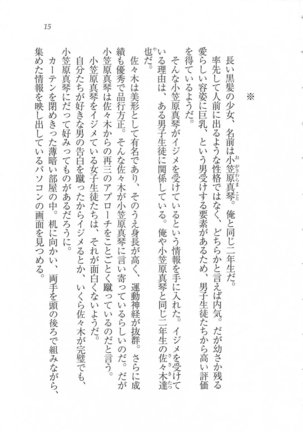 15
※
長い黒髪の少女、名前は小笠原真琴。俺と同じ二年生だ。
率先して人前に出るような性格ではなく、どちらかと言えば内気。だが幼さ残る
愛らしい容姿に巨乳、という男受けする要素があるため、男子生徒たちから高い評価
を得ているようだ。
そんな小笠原真琴がイジメを受けているという情報を手に入れた。イジメを受けて
いる理由は、ある男子生徒に関係している。俺や小笠原真琴と同じ二年生の佐々木達
也だ。
佐々木は美形として有名であり、そのうえ身長が高く、運動神経が抜群。さらに成
績も優秀で品行方正。そんな佐々木が小笠原真琴に言い寄っているらしいのだ。だが
小笠原真琴は佐々木からの再三のアプローチをことごとく蹴っているのだと言う。
小笠原真琴をイジメている女子生徒たちは、それが面白くないようだ。
自分たちが好きな男の告白を蹴ったからイジメるとか、いくら佐々木が完璧でも、
小笠原真琴にだって好みってものがあるだろうに。
カーテンを閉めきった薄暗い部屋の中。机に向かい、両手を頭の後ろで組みながら、
集めた情報を映し出しているパソコンの画面を見つめる。